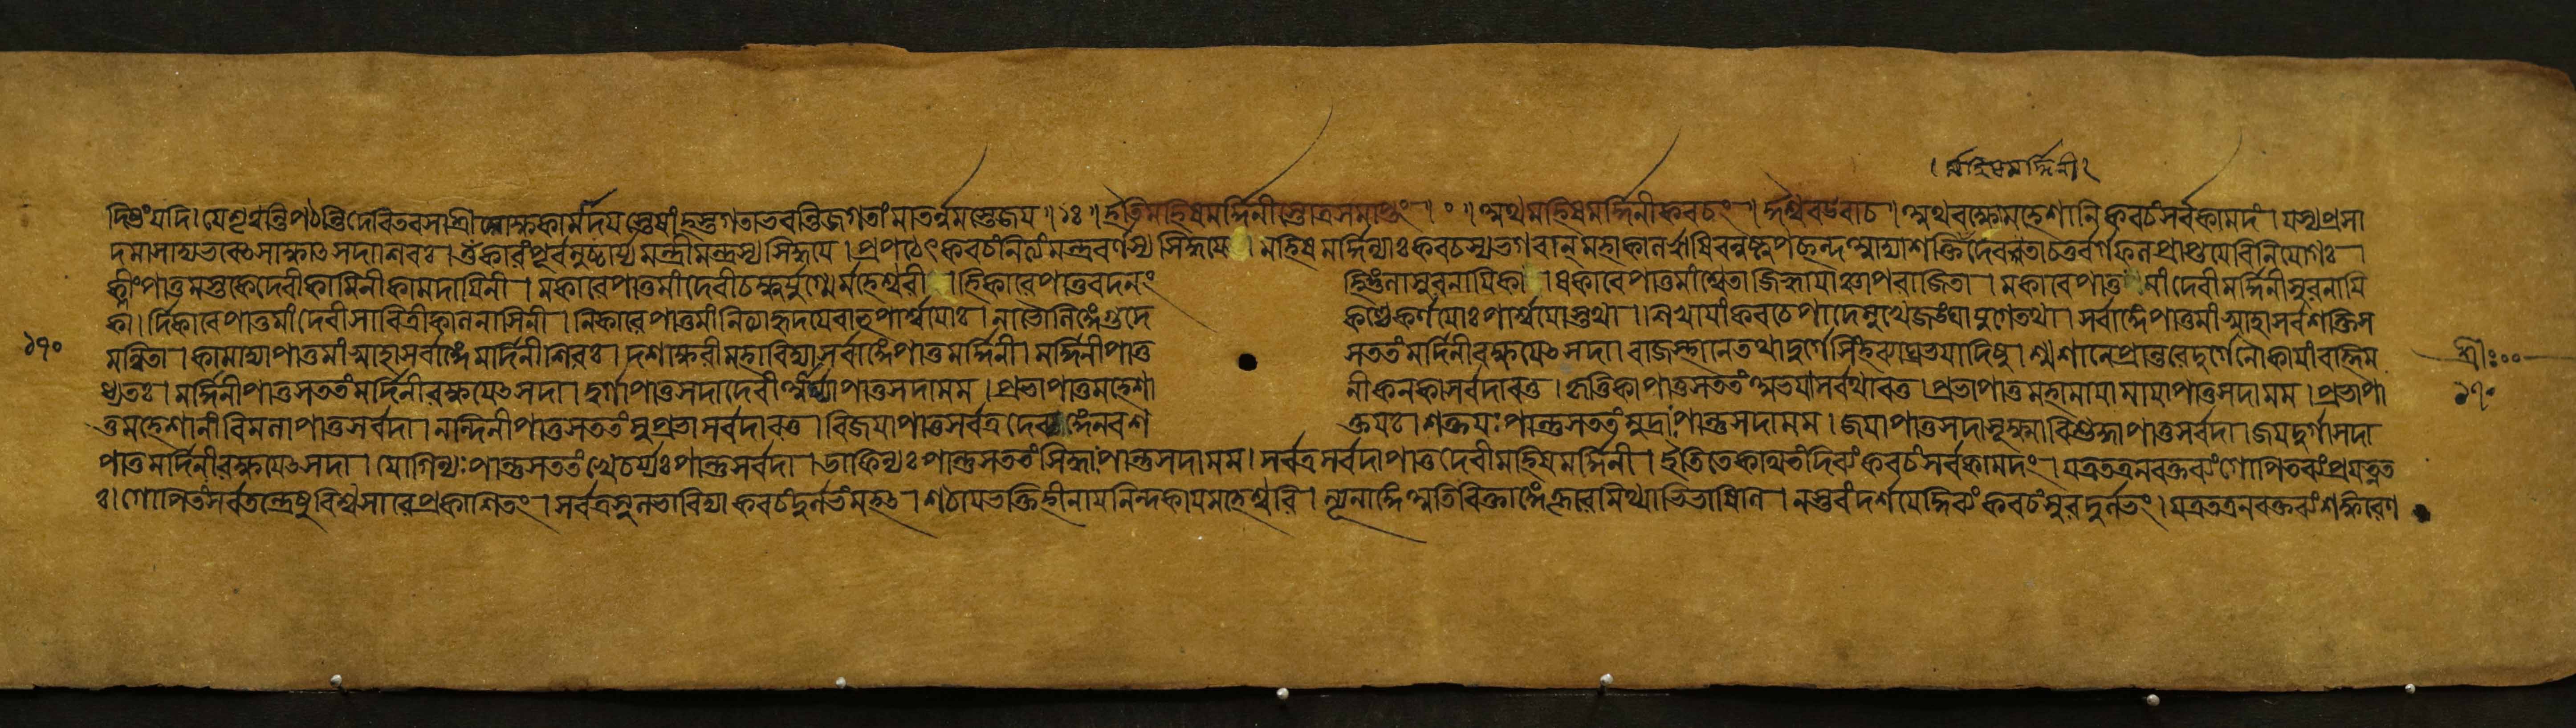 । মহিষমর্দ্দিনী।
যদি। যে শৃণ্বন্তি পঠন্তি দেবি তব মোক্ষকামাদয়স্তেষাং হস্তগতা ভবন্তি জগতাং মাতর্নমস্তে জয় ॥ ঃ ॥ ইতি মহিষমর্দ্দিনীস্তোত্রং সমাপ্তং । ০ ॥ অথ মহিষমর্দ্দিনীকবচং ॥ ঈশ্বর উবাচ ॥ অথ বক্ষ্যে মহেশানি কবচং সর্বকামদং । যস্য প্রসা
দমাসাদ্য ভবেৎ সাক্ষাৎ সদাশিবঃ । ওঁকারং পূর্বমুচ্চার্য্য মন্ত্রী মন্ত্রস্য সিদ্ধয়ে । প্রপঠেৎ কবচং নিত্যং মন্ত্রবর্ণস্য সিদ্ধয়ে । মহিষমর্দ্দিন্যাঃ কবচস্য ভগবান্ মহাকাল ঋষিরনুষ্টুপ্ছন্দ আদ্যাশক্তির্দেবতা চতুর্বর্গফলপ্রাপ্তয়ে বিনিয়োগঃ ।
ক্লীং পাতু মস্তকে দেবী কামিনী কামদায়িনী । মকারে পাতু মাং দেবী চক্ষুর্যুগ্মে মহেশ্বরী । হিকারে পাতু বদনং হিঙ্গুলাসুরনায়িকা । ষকারে পাতু মাং শ্বেতা জিহ্বায়াঞ্চাপরাজিতা । মকারে পাতু মাং দেবী মর্দ্দিনী সুরনায়ি
কা । র্দিকারে পাতু মাং দেবী সাবিত্রী কালনাসিনী । নিকারে পাতু মাং নিত্যা হৃদয়ে বাহুপার্শ্বয়োঃ । নাভৌ লিঙ্গে গুদে কণ্ঠে কর্ণয়োঃ পার্শ্বয়োস্তথা । শিখায়াং কবচে পাদে মুখে জঙ্ঘাযুগে তথা । সর্বাঙ্গে পাতু মাং স্বাহা সর্বশক্তিস
১৭০
মন্বিতা । কামাদ্যা পাতু মাং স্বাহা সর্বাঙ্গে মর্দিনী শিবঃ । দশাক্ষরী মহাবিদ্যা সর্বাঙ্গে পাতু মর্দ্দিনী । মর্দ্দিনী পাতু সততং মর্দিনী রক্ষয়েৎ সদা । রাজস্থানে তথা দুর্গে সিংহব্যাঘ্রভয়াদিষু । শ্মশানে প্রান্তরে দুর্গে নৌকায়াং বহ্নিম
শ্রীঃ০০
ধ্যতঃ । মর্দ্দিনী পাতু সততং মর্দিনী রক্ষয়েৎ সদা । দুর্গা পাতু সদা দেবী আর্য্যা পাতু সদা মম । প্রভা পাতু মহেশা নী কনকা সর্বদাবতু । কৃত্তিকা পাতু সততং অভয়া সর্বথাবতু । প্রভা পাতু মহামায়া মায়া পাতু সদা মম । প্রভা পা
১৭০
তু মহেশানী বিমলা পাতু সর্বদা । নন্দিনী পাতু সততং সুপ্রভা সর্বদাবতু । বিজয়া পাতু সর্বত্র দেব্যঙ্গে নবশ ক্তয়ঃ । শক্তয়ঃ পান্তু সততং মুদ্রাঃ পান্তু সদা মম । জয়া পাতু সদা সূক্ষ্মা বিশুদ্ধা পাতু সর্বদা । জয়দুর্গা সদা
পাতু মর্দিনী রক্ষয়েৎ সদা । যোগিন্যঃ পান্তু সততং খেচর্য্যঃ পান্তু সর্বদা । ডাকিন্যঃ পান্তু সততং সিদ্ধাঃ পান্তু সদা মম । সর্বত্র সর্বদা পাতু দেবী মহিষমর্দ্দিনী । ইতি তে কথিতং দিব্যং কবচং সর্বকামদং । যত্র তত্র ন বক্তব্যং গোপিতব্যং প্রযত্নত
ঃ । গোপিতং সর্বতন্ত্রেষু বিশ্বসারে প্রকাশিতং । সর্বত্র সুলভা বিদ্যা কবচং দুর্লভং মহৎ । শঠায় ভক্তিহীনায় নিন্দকায় মহেশ্বরি । ন্যূনাঙ্গে অতিরিক্তাঙ্গে ক্রূরে মিথ্যাভিভাষিনি । ন স্তবং দর্শয়েদ্দিব্যং কবচং সুরদুর্লভং । যত্র তত্র ন বক্তব্যং শঙ্করেণ